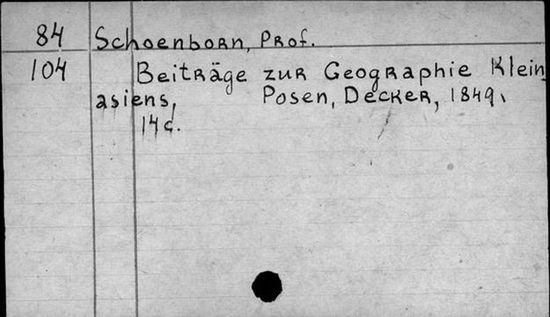 84 Schoenborn, Prof.
104 Beiträge zur Geographie Klein
asiens, Posen, Decker, 1849.
14 c.